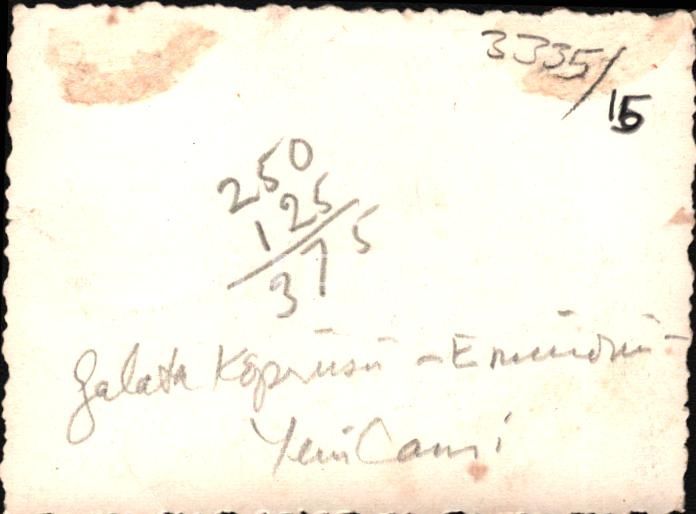 3335/15
250
125
375
Galata Köprüsü - Eminönü -
Yeni Cami